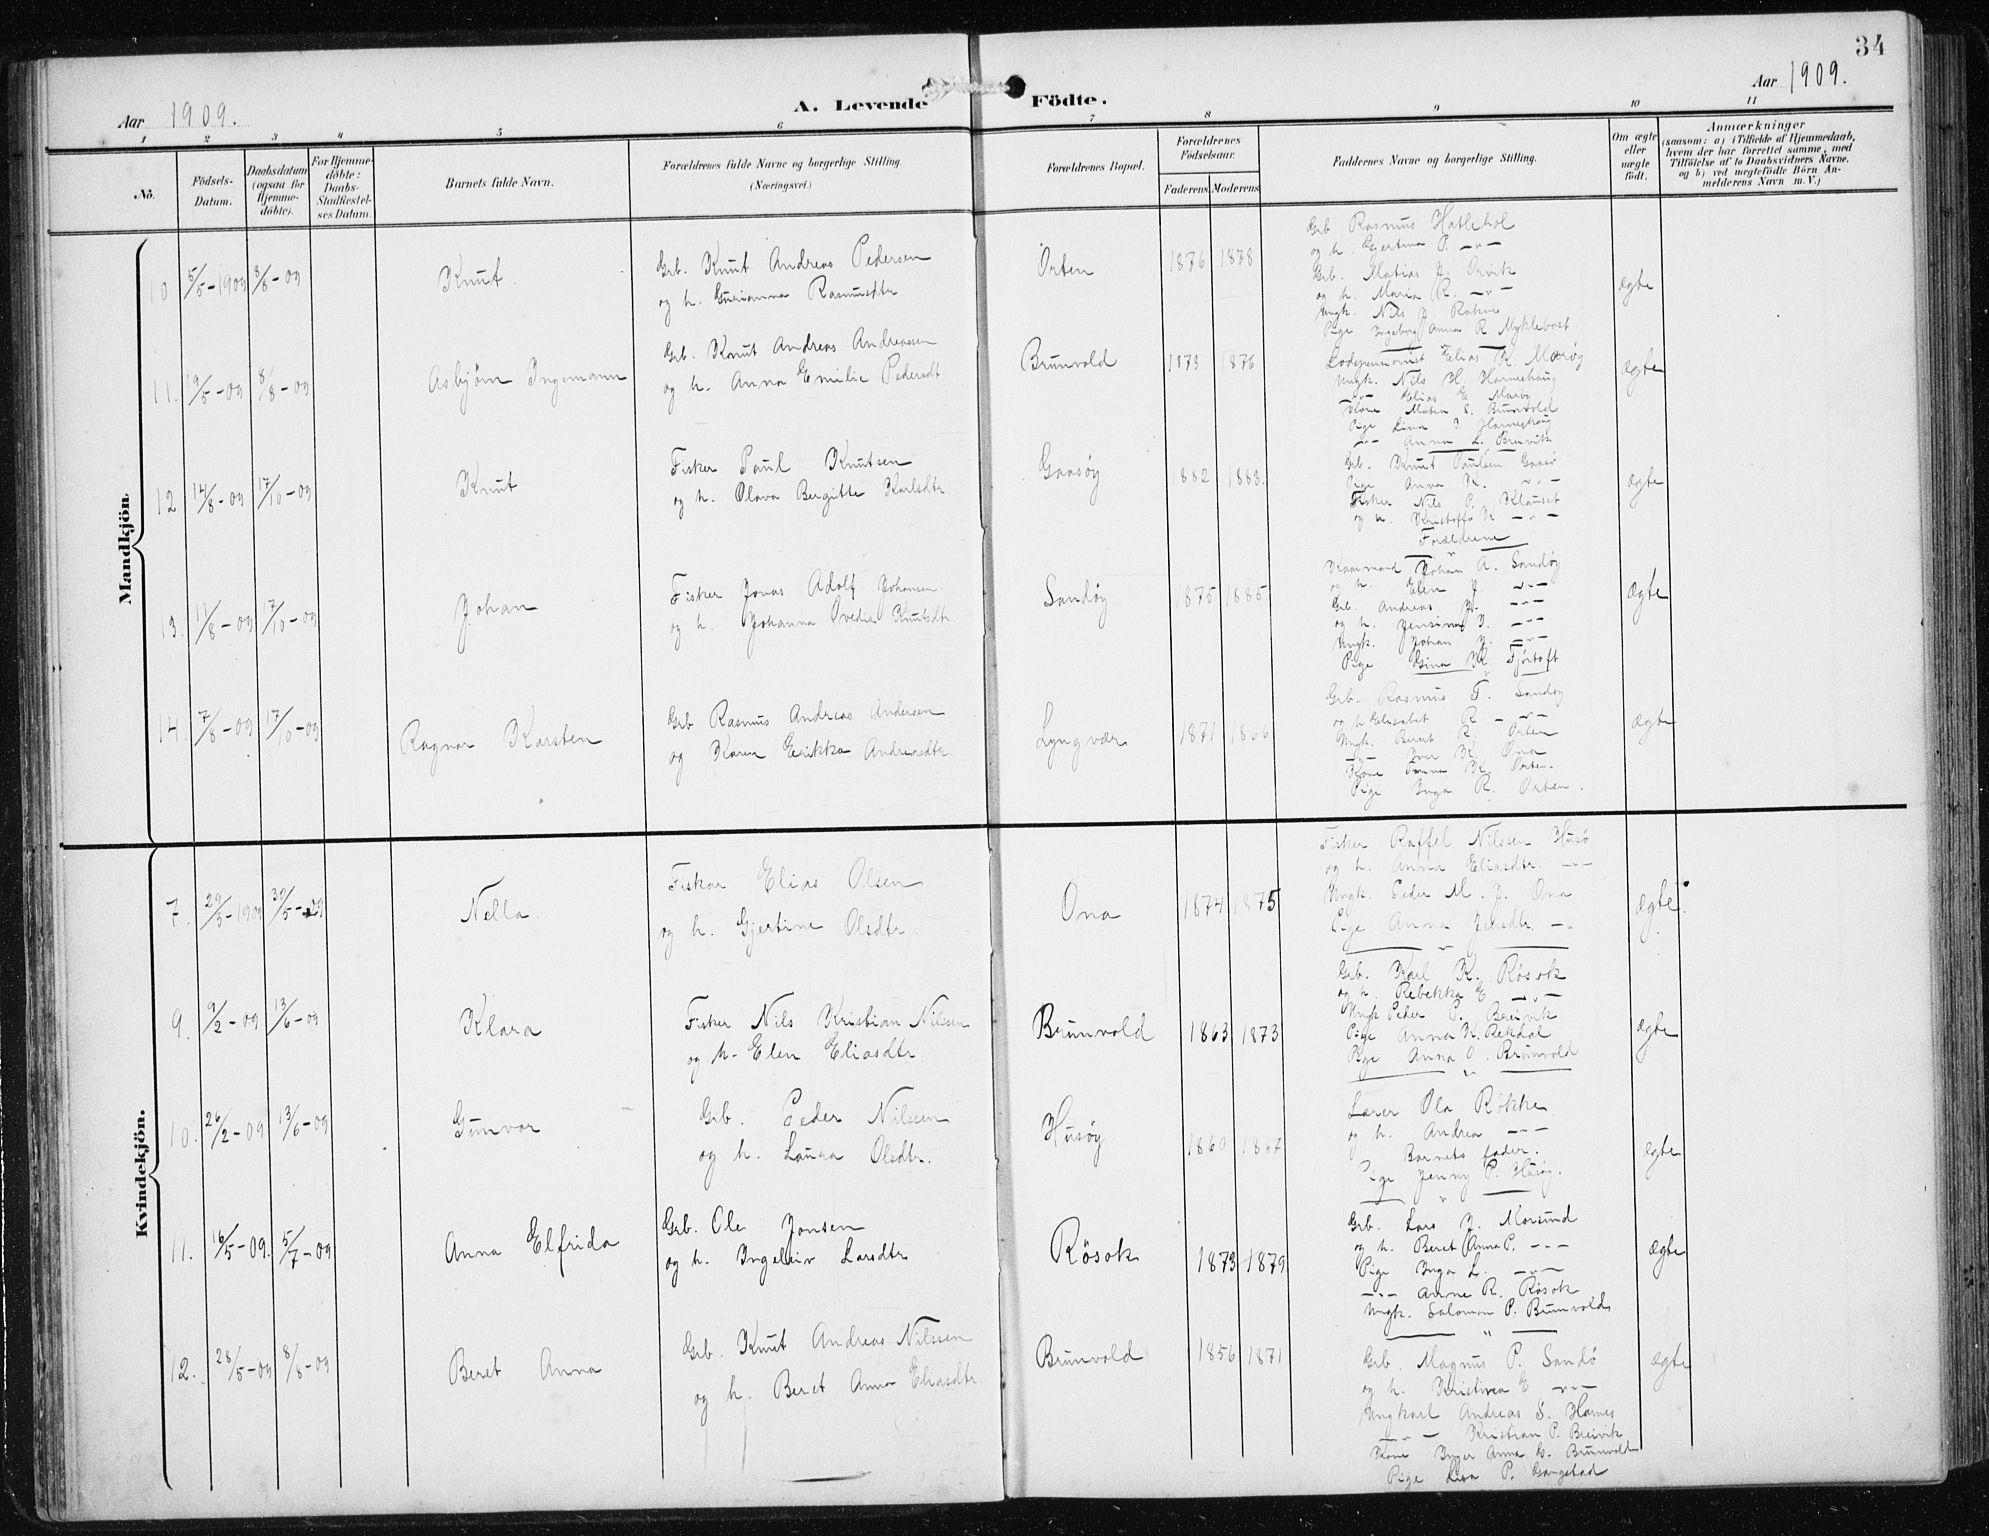 34
Aar 1909.
A. Levende Födte.
Aar 1909.
1 2 3 4 5 6 7 8 9 10 11
No.
Födsels-Datum.
Daabsdatum (ogsaa for Hjemme-döbte).
For Hjemme-döbte: Daabs-Stadfæstel-ses Datum.
Barnets fulde Navn.
Forældrenes fulde Navne og borgerlige Stilling (Næringsvei.)
Forældrenes Bopæl.
Forældrenes Födselsaar.
Faderens. Moderens.
Faddernes Navne og borgerlige Stilling.
Om ægte eller uægte födt.
Anmærkninger
(saasom: a) i Tilfælde af Hjemmedaab,
hvem der har forrettet samme, med
Tilföielse af to Daabsvidners Navne.
og b) ved uægtefödte Börn An-
melderens Navn m. V.)
Mandkjön.
10 5/5-1909 8/8-09 Knut.
Grb. Knut Andreas Pedersen
og h. Gurianna Rasmusdtr
Orten 1876 1878
Grb Rasmus Hatlehol
og h. Gjertina P. -"-
Grb. Matias J. Orvik
og h. Maria R. -"-
Ungk. Nils J. Rakne
Pige Ingeborg Anna R Myklebost
ægte
11. 19/5-09 8/8-09 Asbjørn Ingemann
Grb. Knut Andreas Andreassen
og h. Anna Emilie Pedersdt
Brunvold 1873 1876
Lodspensionist Elias K. Marøy
Ungk. Nils H. Harneshaug
-"- Elias E Marøy
Kone Matea S. Brunvold
Pige Lina J. Harneshaug
-"- Anna L. Breivik
ægte
12 14/8-09 17/10-09 Knut
Fisker Paul Knutsen
og h. Olava Bergitte Karlsdtr
Gaasøy 1882 1883.
Grb. Knut Paulsen Gaasø
Pige Anna K. -"-
Fisker Nils P. Klauset
og h. Kristoffa K -"-
Forældrene
ægte
13. 11/8-09 17/10-09 Johan
Fisker Jonas Adolf Johansen
og h. Johanna Ovedia Knutsdtr
Sandøy 1875 1885
Kaarmand Johan A. Sandøy
og h. Elen J. -"-
Grb. Andreas J. -"-
og h. Jensina J. -"-
Ungk. Johan J. -"-
Pige Gina K. Fjørtoft
ægte
14. 7/8-09 17/10-09 Ragnar Karsten
Grb Rasmus Andreas Andersen
og Karen Erikka Andreasdtr.
Lyngvær 1871 1866
Grb. Rasmus T. Sandøy
og h Elisabet R -"-
Ungk. Bernt R. Orten
-"- Iver K. Ona
Kone Anna K. Orten.
Pige Inga R. Orten.
ægte
Kvindekjön.
7. 29/3-1909 30/5-09 Nella.
Fisker Elias Olsen
og h. Gjertine Olsdtr.
Ona 1874 1875
Fisker Raffel Nilssen Husø
og h. Anna Eliasdtr. -"-
Ungk. Peder M. J. Ona
Pige Anna Jensdtr. -"
ægte.
9. 9/2-09 13/6-09 Klara
Fisker Nils Kristian Nilssen
og h. Elen Eliasdtr.
Brunvold 1863 1873
Grb. Karl K. Røsok
og h. Rebekka E -"-
Ungk Peder P. Breivik
Pige Anna K. Rekdal
Pige Anna O. Brunvold
ægte
10. 26/2-09 13/6-09 Gunvor
Grb. Peder Nilssen
og h. Laura Olsdtr.
Husøy 1860 1867
Lærer Ola Røkke
og h. Andrea -"-
Barnets fader.
Pige Jenny P. Husøy.
ægte
11. 16/5-09. 5/7-09 Anna Elfrida
Grb. Ole Jonsen
og h. Ingeleiv Larsdtr
Røsok 1873 1879
Grb. Lars J. Morsund
og h. Beret Anna P. -"-
Pige Inga L. -"-
-"- Anne R. Røsok
Ungk. Salomon P. Brunvold
ægte
12. 28/5-09 8/8-09 Beret Anna
Grb. Knut Andreas Nilssen
og h. Beret Anna Eliasdtr.
Brunvold 1856 1871
Grb. Magnus P. Sandø
og h. Kristina E -"-
Ungkarl Andreas S. Harnes
-"- Kristian P. Breivik
Kone Inger Anna G. Brunvold
Pige Lisa P. Gangstad
ægte